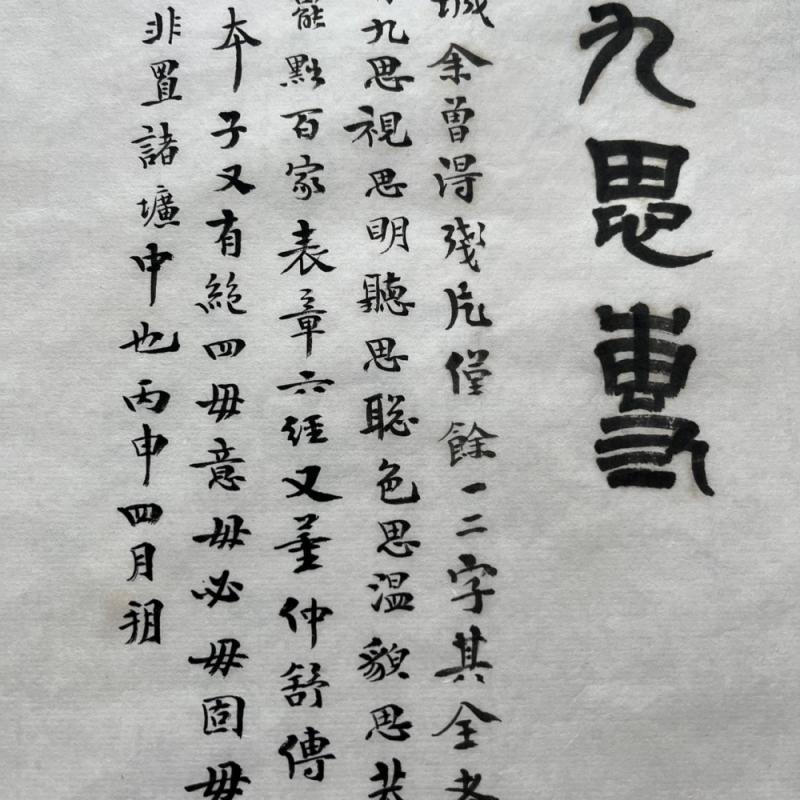 九思專
城余曾得殘片僅餘一二字其全者
九思視思明聽思聰色思溫貌思恭
罷黜百家表章六經又董仲舒傳
本子又有絕四毋意毋必毋固毋
非置諸壙中也丙申四月